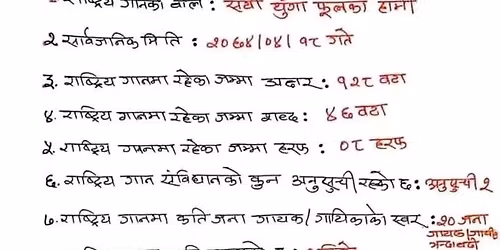 राष्ट्रिय गानको बोल : सयौं थुँगा फूलका हामी
२. सार्वजानिक मिति : २०६४।०४।१८ गते
३. राष्ट्रिय गानमा रहेका जम्मा अक्षर : १२८ वटा
४. राष्ट्रिय गानमा रहेका जम्मा शब्द : ४६ वटा
५. राष्ट्रिय गानमा रहेका जम्मा हरफ : ०८ हरफ
६. राष्ट्रिय गान संविधानको कुन अनुसूची रहेको छ : अनुसूची २
७. राष्ट्रिय गानमा कति जना गायक/गायिकाको स्वर : २० जना
गायक/गायी